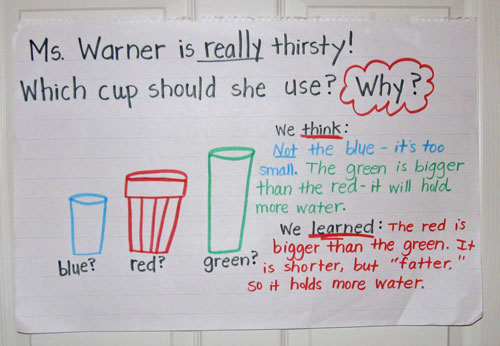 Ms. Warner is really thirsty!
Which cup should she use? Why?
We think:
Not the blue - it's too
small. The green is bigger
than the red - it will hold
more water.
We learned: The red is
bigger than the green. It
is shorter, but "fatter."
so it holds more water.
blue?
red?
green?